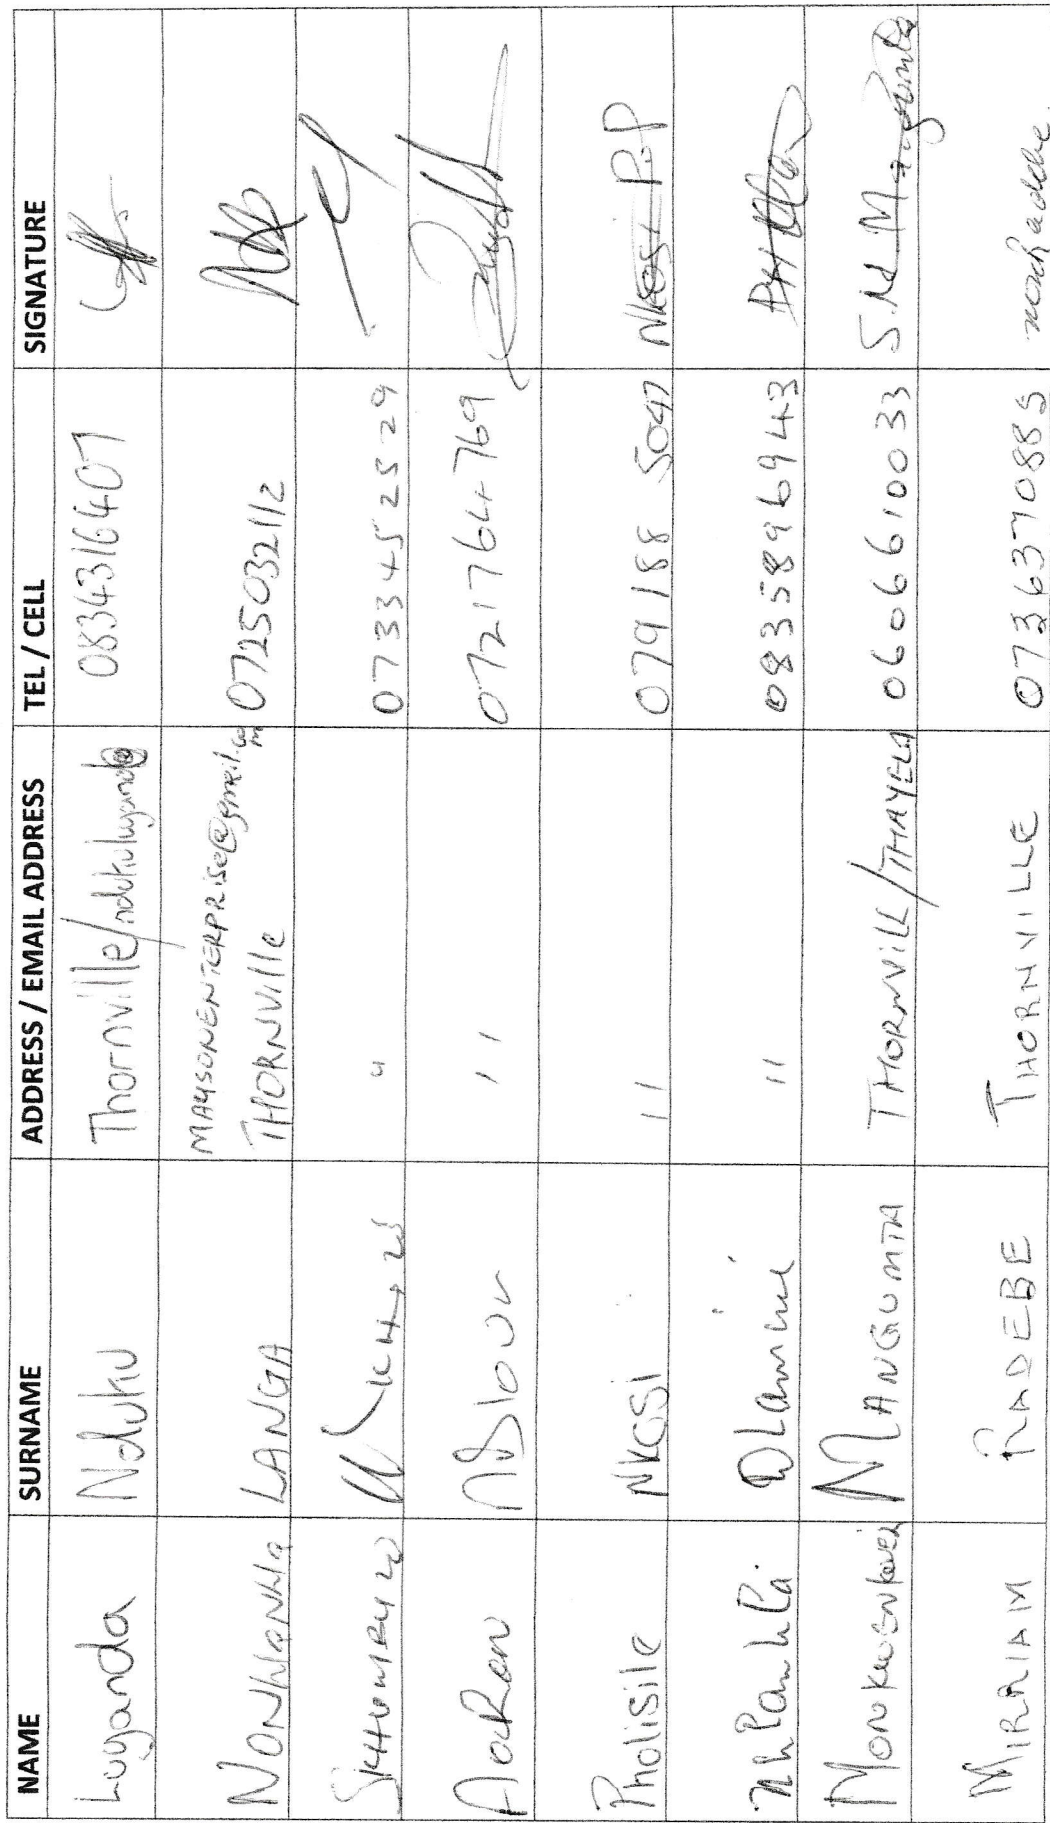 NAME SURNAME ADDRESS / EMAIL ADDRESS TEL / CELL SIGNATURE
Luyanda Nduku Thornville/ndukuluyanda@ 0834316407
NONHLANHLA LANGA MAYSONENTERPRISE@gmail.com THORNVIlle 0725032112
" 0733452529
" 0721764769
Pholisile NKOSI " 079188 5047 NKOSI P.P
Dlamini " 0835896943
MANGOMTA THORNVILL/THAYELA 0606610033 S.M
MIRRIAM RADEBE THORNVILLE 0736370885